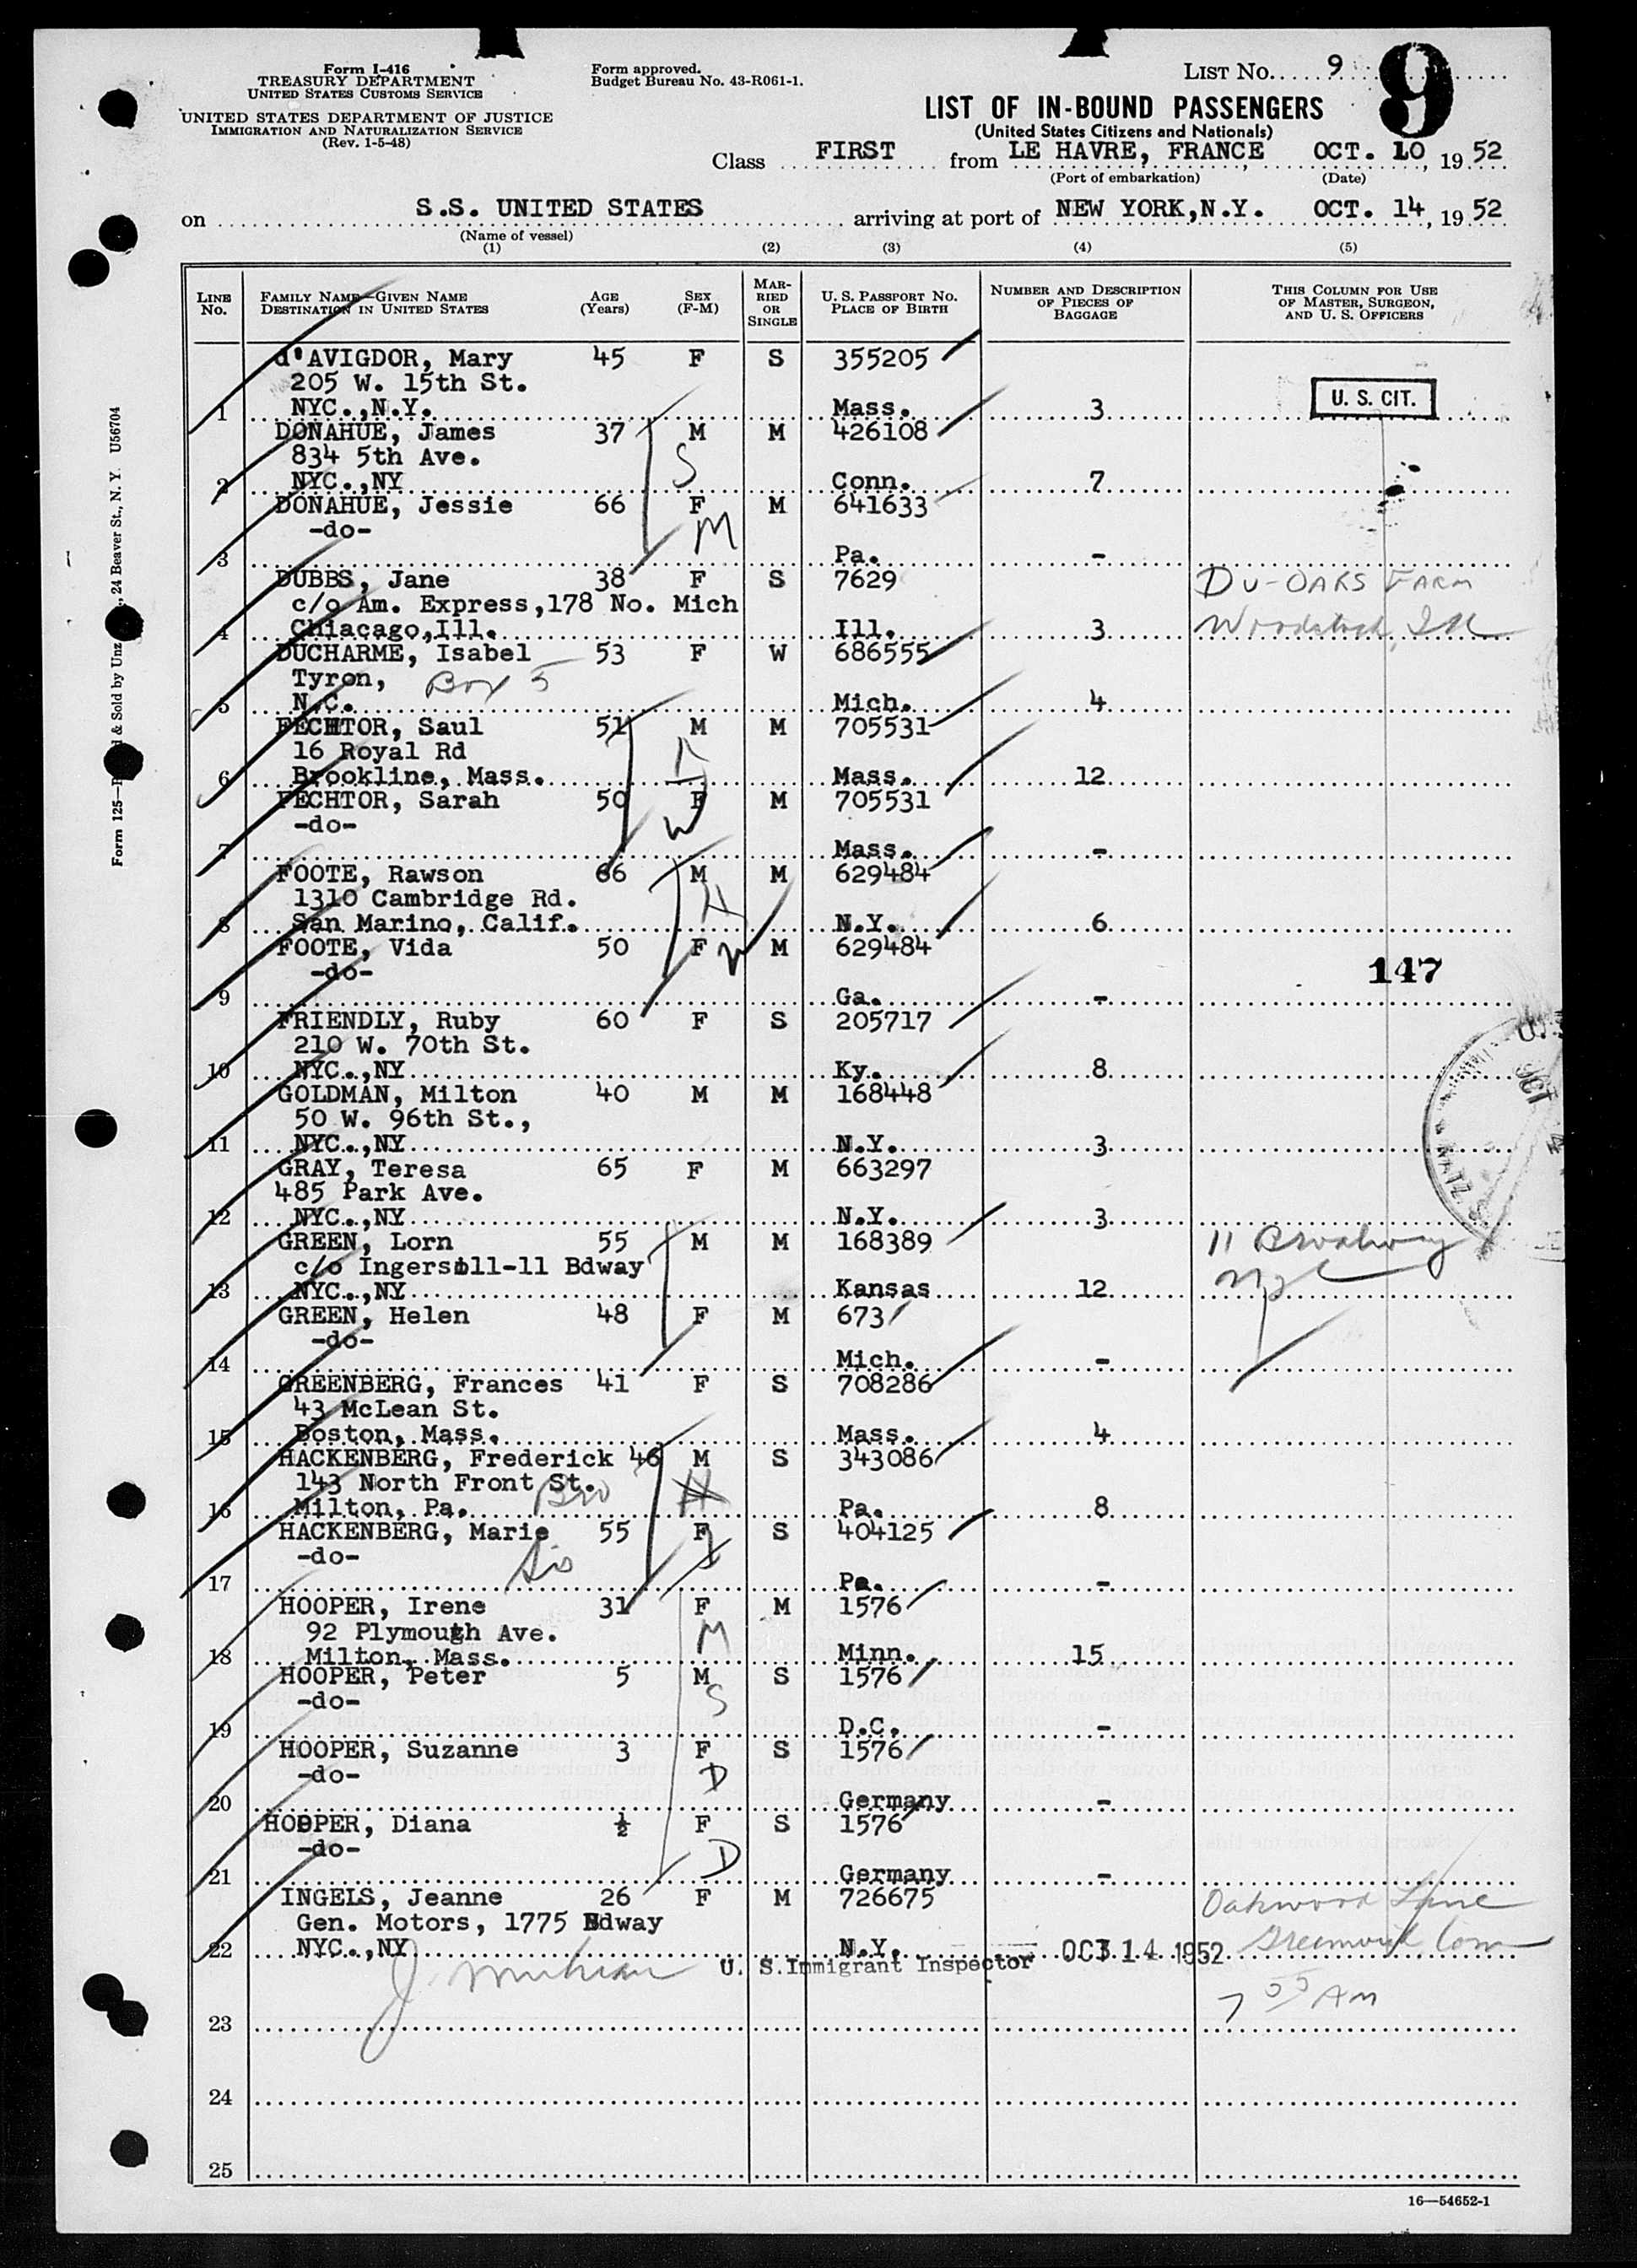 Form I-416
TREASURY DEPARTMENT
UNITED STATES CUSTOMS SERVICE
UNITED STATES DEPARTMENT OF JUSTICE
IMMIGRATION AND NATURALIZATION SERVICE
(Rev. 1-5-48)
Form approved.
Budget Bureau No. 43-R061-1.
LIST No. 9
9
LIST OF IN-BOUND PASSENGERS
(United States Citizens and Nationals)
Class FIRST from LE HAVRE, FRANCE OCT. 10, 1952
(Port of embarkation) (Date)
on S.S. UNITED STATES arriving at port of NEW YORK,N.Y. OCT. 14, 1952
(Name of vessel)
(1) (2) (3) (4) (5)
LINE No. FAMILY NAME—GIVEN NAME DESTINATION IN UNITED STATES AGE (Years) SEX (F-M) MARRIED OR SINGLE U. S. PASSPORT NO. PLACE OF BIRTH NUMBER AND DESCRIPTION OF PIECES OF BAGGAGE THIS COLUMN FOR USE OF MASTER, SURGEON, AND U. S. OFFICERS
d'AVIGDOR, Mary 45 F S 355205
205 W. 15th St.
U. S. CIT.
1 NYC.,N.Y. Mass. 3
DONAHUE, James 37 M M 426108
834 5th Ave. S
2 NYC.,NY Conn. 7
DONAHUE, Jessie 66 F M 641633
-do- M
3 Pa. -
DUBBS, Jane 38 F S 7629 DU-OAKS FARM
c/o Am. Express,178 No. Mich
4 Chiacago,Ill. Ill. 3 Woodstock, Ill
DUCHARME, Isabel 53 F W 686555
Tyron, Box 5
5 N.C. Mich. 4
FECHTOR, Saul 51 M M 705531
16 Royal Rd
6 Brookline, Mass. H Mass. 12
FECHTOR, Sarah 50 F M 705531
-do- W
7 Mass. -
FOOTE, Rawson 66 M M 629484
1310 Cambridge Rd. H
8 San Marino, Calif. N.Y. 6
FOOTE, Vida 50 F W M 629484
-do- 147
9 Ga. -
FRIENDLY, Ruby 60 F S 205717
210 W. 70th St.
10 NYC.,NY Ky. 8
GOLDMAN, Milton 40 M M 168448
50 W. 96th St.,
11 NYC.,NY N.Y. 3
GRAY, Teresa 65 F M 663297
485 Park Ave.
12 NYC.,NY N.Y. 3
GREEN, Lorn 55 M M 168389 11 Broadway
c/o Ingersoll-11 Bdway NYC
13 NYC.,NY Kansas 12
GREEN, Helen 48 F M 673
-do-
14 Mich. -
GREENBERG, Frances 41 F S 708286
43 McLean St.
15 Boston, Mass. Mass. 4
HACKENBERG, Frederick 46 M S 343086
143 North Front St. Bro H
16 Milton, Pa. Pa. 8
HACKENBERG, Marie 55 F S 404125
-do- Sis
17 Pa. -
HOOPER, Irene 31 F M 1576
92 Plymouth Ave. M
18 Milton, Mass. Minn. 15
HOOPER, Peter 5 M S 1576
-do- S
19 D.C. -
HOOPER, Suzanne 3 F S 1576
-do- D
20 Germany -
HOOPER, Diana ½ F S 1576
-do- D
21 Germany -
INGELS, Jeanne 26 F M 726675 Oakwood Lane
Gen. Motors, 1775 Bdway
22 NYC.,NY N.Y. Greenwich Conn
J. U. S.Immigrant Inspector OCT 14 1952
7 55 AM
23
24
25
16—54652-1
24 Beaver St., N. Y. U56704